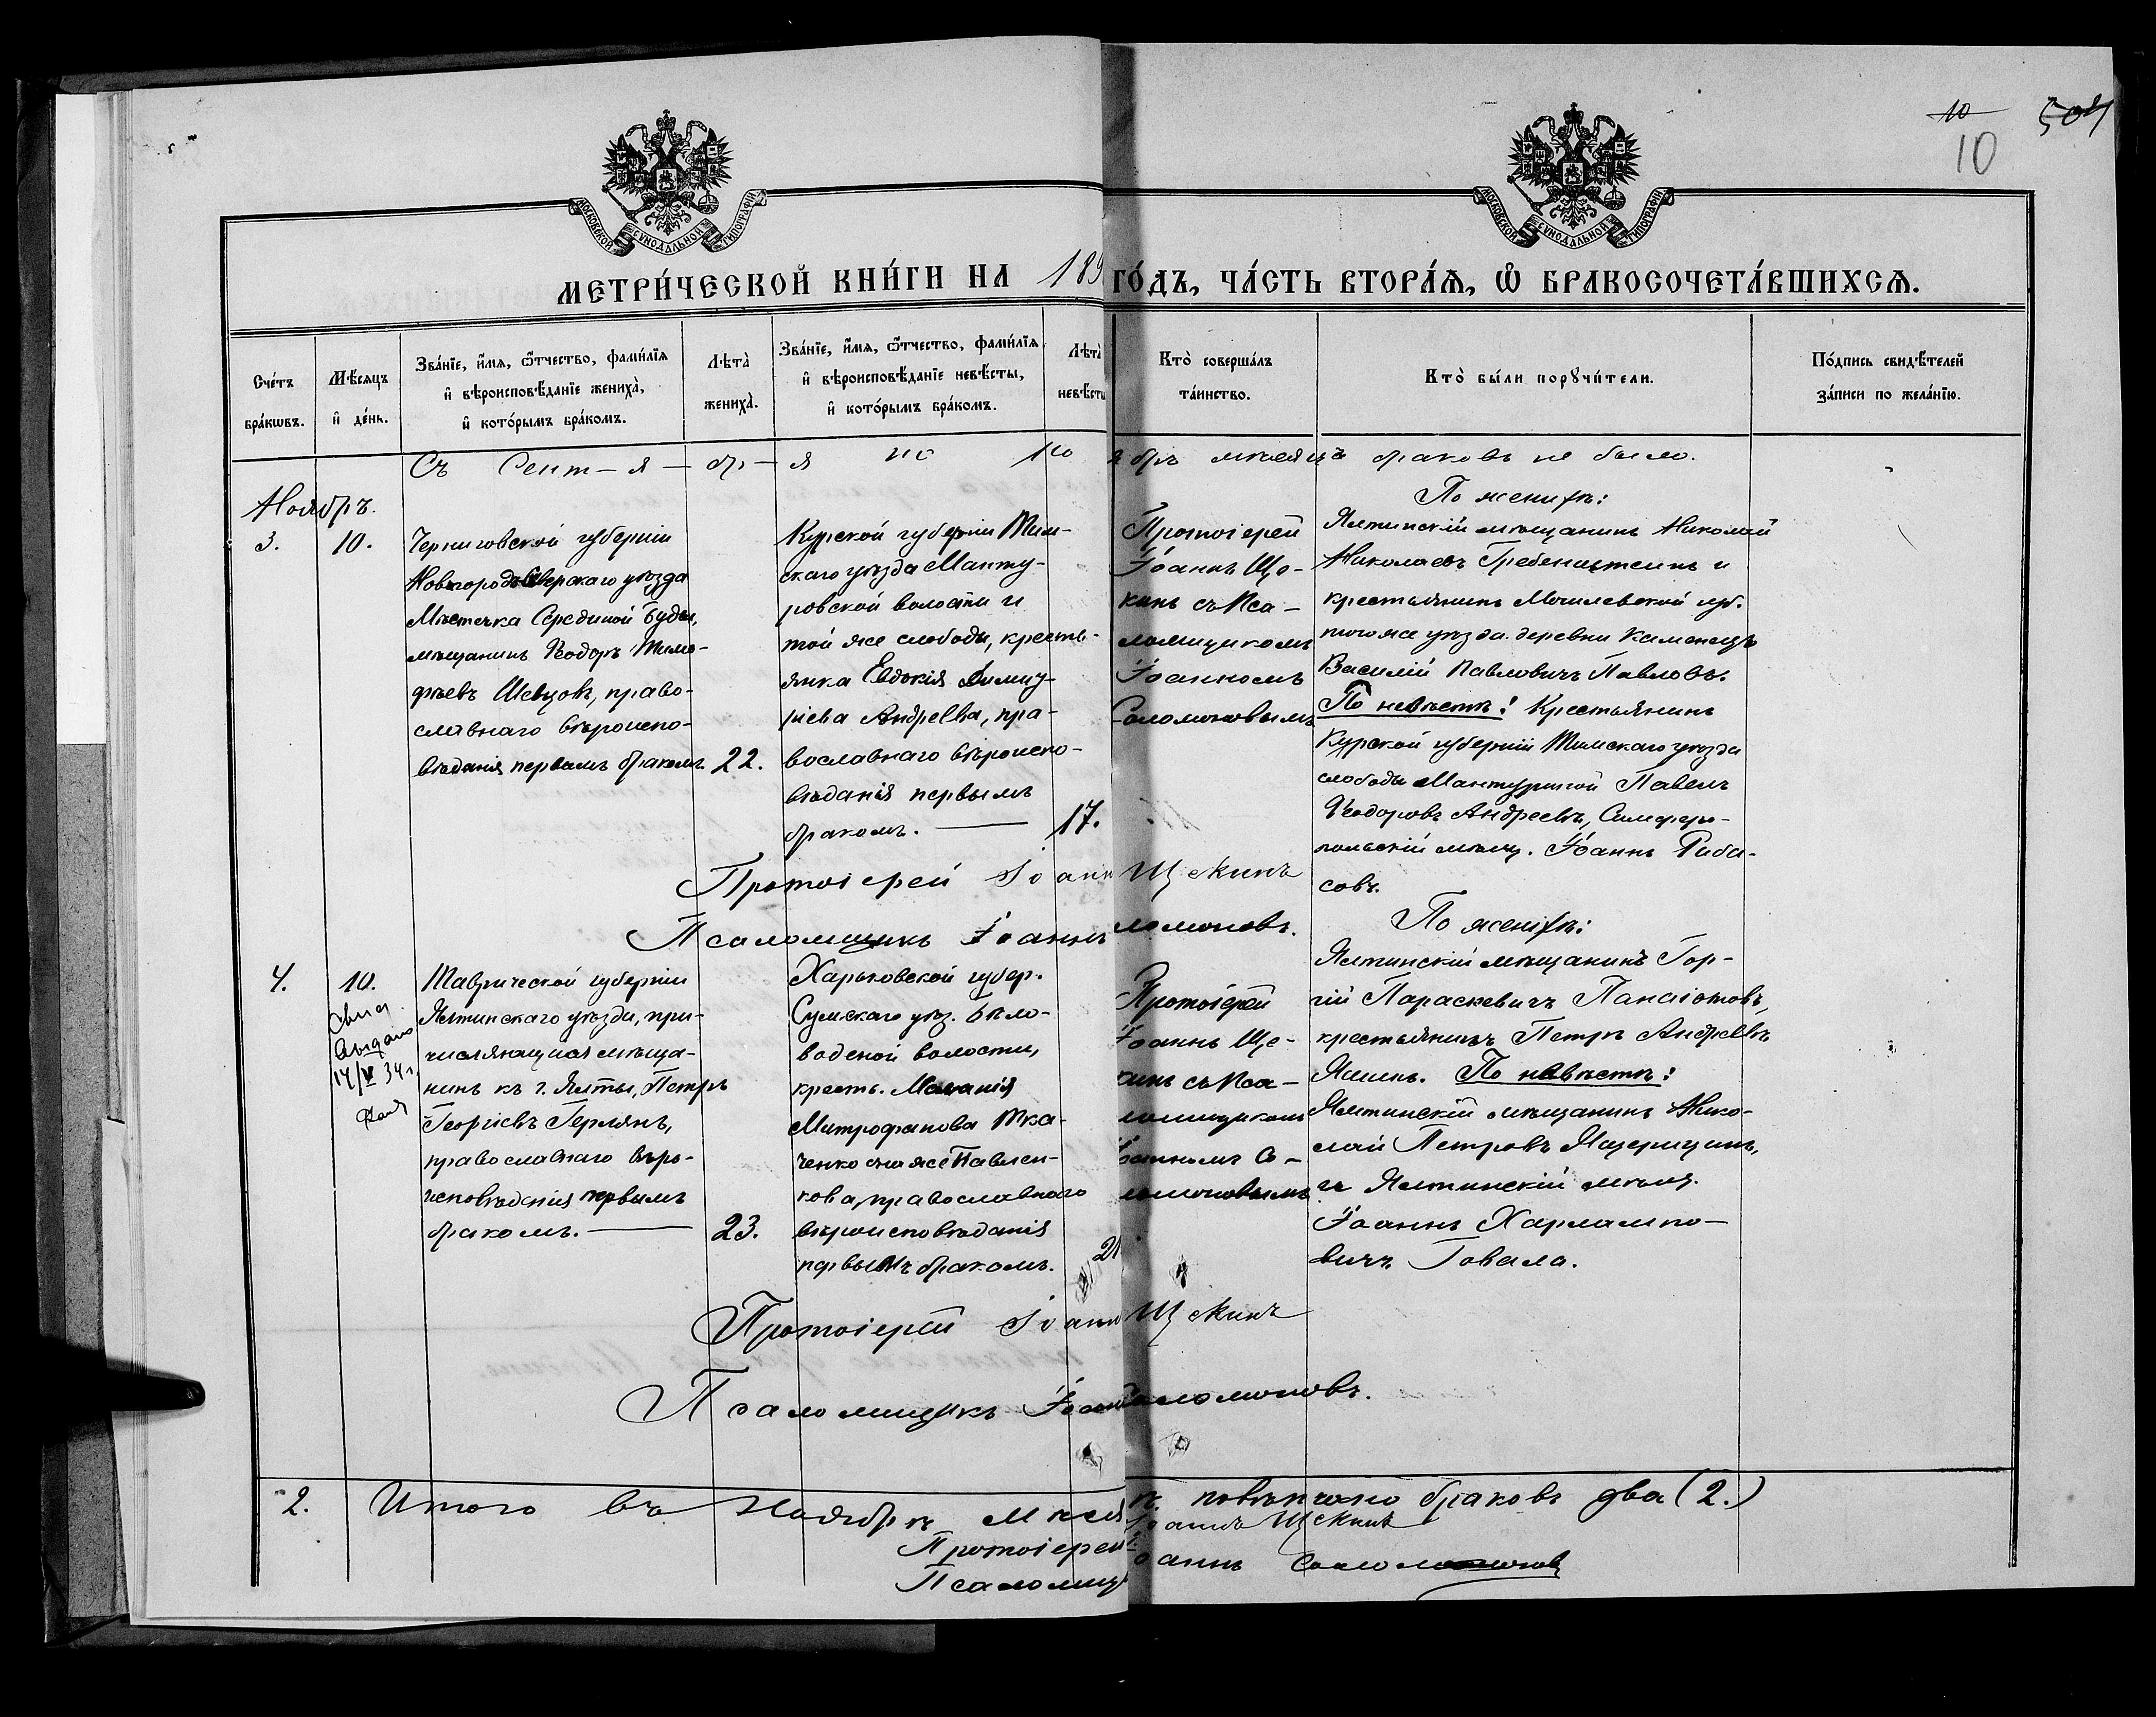 10 504
10
МОСКОВСКОЙ СѴНОДАЛЬНОЙ ТИПОГРАФІИ
МОСКОВСКОЙ СѴНОДАЛЬНОЙ ТИПОГРАФІИ
МЕТРИ́ЧЕСКОЙ КНИ́ГИ НА 189 ГО́ДЪ, ЧА́СТЬ ВТОРА́Ѧ, Ѡ҆ БРАКОСОЧЕТА́ВШИХСѦ.
Сче́тъ
бра́кѡвъ.
Мѣ́сѧцъ
и҆ де́нь.
Зва́нїе, и҆́мѧ, ѻ҆́тчество, фами́лїѧ
и҆ вѣроисповѣ́данїе жениха̀,
и҆ кото́рымъ бра́комъ.
Лѣта̀
жениха̀.
Зва́нїе, и҆́мѧ, ѻ҆́тчество, фами́лїѧ
и҆ вѣроисповѣ́данїе невѣ́сты,
и҆ кото́рымъ бра́комъ.
Лѣта̀
невѣ́сты
Кто̀ соверша́лъ
та́инство.
Кто̀ бы́ли порꙋчи́тели.
По́дпись свидѣ́телей
за́писи по жела́нїю.
Съ Сент-я-бр-я по но ябрь мѣсяцъ браковъ не было.
Ноябрь.
3.
10.
Черниговской губерніи
Новгородъ Сѣверскаго уѣзда
Мѣстечка Серединой Буды,
мѣщанинъ Ѳеодоръ Тимо-
фѣевъ Шевцовъ, право-
славнаго вѣроиспо-
вѣданія первымъ бракомъ.
22.
Курской губерніи Тим-
скаго уѣзда Манту-
ровской волости и
той же слободы, кресть-
янка Евдокія Димит-
ріева Андреева, пра-
вославнаго вѣроиспо-
вѣданія первымъ
бракомъ.
17.
Протоіерей
Іоаннъ Ще-
кинъ съ Пса-
ломщикомъ
Іоанномъ
Соломоновымъ
По женихѣ:
Ялтинскій мѣщанинъ Николай
Николаевъ Гребенштеинъ и
крестьянинъ Могилевской губ.
того же уѣзда деревни Каменецъ
Василій Павловичъ Павловъ.
По невѣстѣ: Крестьянинъ
Курской губерніи Тимскаго уѣзда
слободы Мантуриной Павелъ
Ѳеодоровъ Андреевъ, Симферо-
польскій мѣщ. Іоаннъ Риба-
совъ.
Протоіерей Іоанн Щекинъ
Псаломщикъ Іоаннъ ломоновъ.
4.
10.
Свид.
выдано
14/V 34 г.
Таврической губерніи
Ялтинскаго уѣзда, при-
числяющійся мѣща-
нинъ къ г. Ялты, Петръ
Георгіевъ Герлянъ,
православнаго вѣро-
исповѣданія первымъ
бракомъ.
23.
Харьковской губер.
Сумскаго уѣз. Бѣло-
водской волости,
кресть. Маланія
Митрофанова Тка-
ченко она же Павлен-
кова, православнаго
вѣроисповѣданія
первымъ бракомъ.
21
Протоіерей
Іоаннъ Ще-
кинъ съ Пса-
ломщикомъ
Іоанномъ Со-
ломоновымъ
По женихѣ:
Ялтинскій мѣщанинъ Гор-
гій Параскевичъ Панаіотовъ,
крестьянинъ Петръ Андреевъ
Яшинъ. По невѣстѣ:
Ялтинскій мѣщанинъ Нико-
лай Петровъ Мащерицынъ,
и Ялтинскій мѣщ.
Іоаннъ Харлампо-
вичъ Говала.
Протоіерей Іоанн Щекинъ
Псаломщикъ Іоанн Соломоновъ.
2. Итого въ Ноябрѣ Мѣся ѣ. повѣнчано браковъ два (2.)
Протоіерей Іоаннъ Щекинъ
Псаломщ оаннъ Соломоновъ